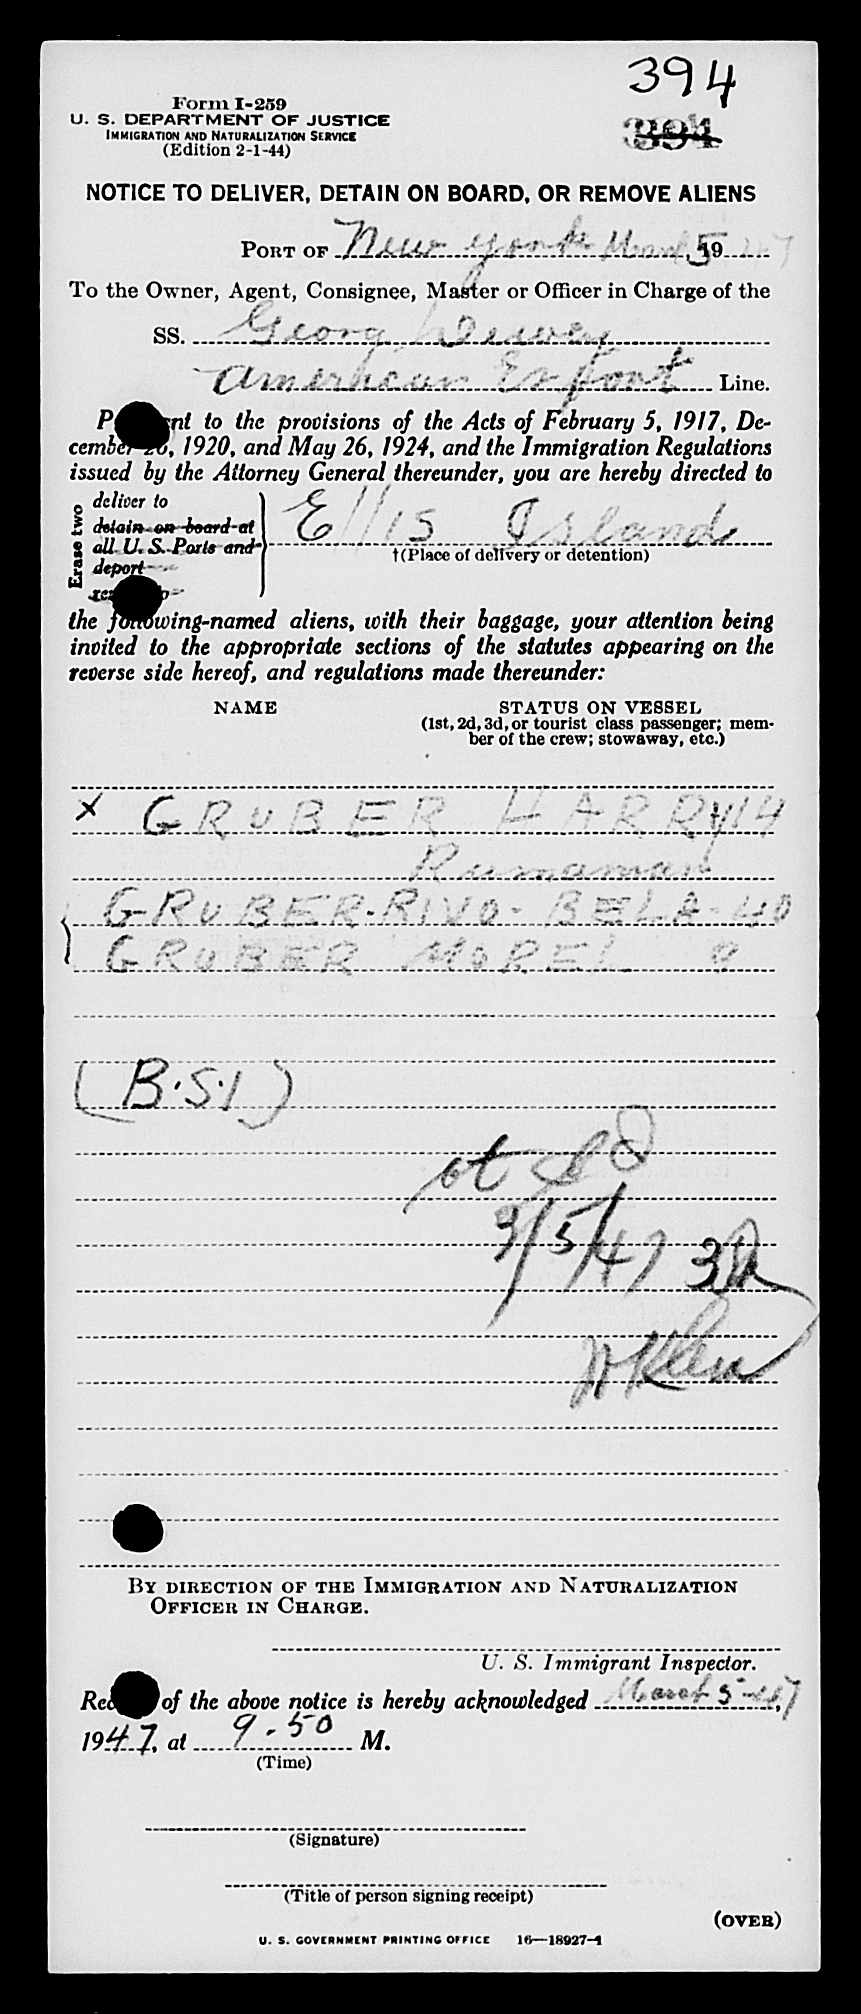 394
Form I-259
394
U. S. DEPARTMENT OF JUSTICE
IMMIGRATION AND NATURALIZATION SERVICE
(Edition 2-1-44)
NOTICE TO DELIVER, DETAIN ON BOARD, OR REMOVE ALIENS
PORT OF New York March 5, 1947
To the Owner, Agent, Consignee, Master or Officer in Charge of the
SS. Georg Dewey
American Export Line.
P nt to the provisions of the Acts of February 5, 1917, De-
cember 26, 1920, and May 26, 1924, and the Immigration Regulations
issued by the Attorney General thereunder, you are hereby directed to
Erase two
deliver to
detain on board at
all U. S. Ports and
deport
Ellis Island
†(Place of delivery or detention)
the following-named aliens, with their baggage, your attention being
invited to the appropriate sections of the statutes appearing on the
reverse side hereof, and regulations made thereunder:
NAME STATUS ON VESSEL
(1st, 2d, 3d, or tourist class passenger; mem-
ber of the crew; stowaway, etc.)
x GRUBER HARRY 14
Rumanian
GRUBER-RIVO-BELA-40
GRUBER MOREL 9
(B.S.I)
3/5/47
By DIRECTION OF THE IMMIGRATION AND NATURALIZATION
OFFICER IN CHARGE.
U. S. Immigrant Inspector.
Rec of the above notice is hereby acknowledged March 5-47,
1947, at 9.50 M.
(Time)
(Signature)
(Title of person signing receipt)
(OVER)
U. S. GOVERNMENT PRINTING OFFICE 16—18927-1